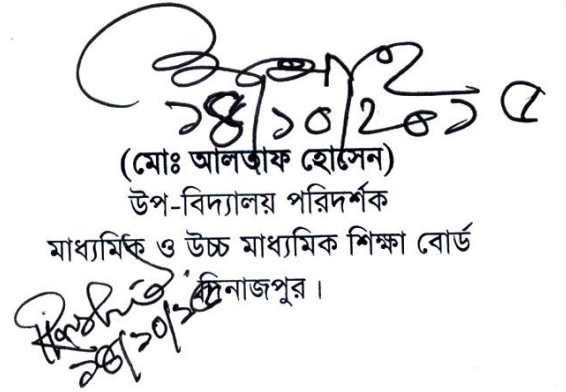 ১৪/১০/২০১৫
(মোঃ আলতাফ হোসেন)
উপ-বিদ্যালয় পরিদর্শক
মাধ্যমিক ও উচ্চ মাধ্যমিক শিক্ষা বোর্ড
দিনাজপুর।